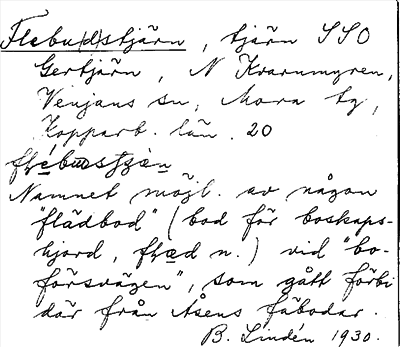 Flebu(d)stjärn, tjärn SSO
Gertjärn, N Kvarnmyren,
Venjans sn, Mora tg,
Kopparb. län. 20
Namnet möjl. av någon
"flädbod" (bod för boskaps-
hjord, flæd n.) vid "bo-
försvägen", som gått förbi
där från Åsens fäbodar.
B. Lindén 1930.